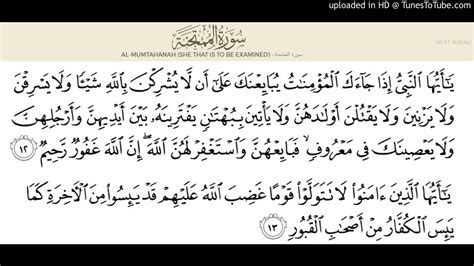 uploaded in HD @ TunesToTube.com
سورة الممتحنة
NEXT SURAH
AL-MUMTAHANAH (SHE THAT IS TO BE EXAMINED) - سورة الممتحنة
يَٰٓأَيُّهَا ٱلنَّبِيُّ إِذَا جَآءَكَ ٱلْمُؤْمِنَٰتُ يُبَايِعْنَكَ عَلَىٰٓ أَن لَّا يُشْرِكْنَ بِٱللَّهِ شَيْـًٔا وَلَا يَسْرِقْنَ
وَلَا يَزْنِينَ وَلَا يَقْتُلْنَ أَوْلَٰدَهُنَّ وَلَا يَأْتِينَ بِبُهْتَٰنٍ يَفْتَرِينَهُۥ بَيْنَ أَيْدِيهِنَّ وَأَرْجُلِهِنَّ
وَلَا يَعْصِينَكَ فِي مَعْرُوفٍ ۙ فَبَايِعْهُنَّ وَٱسْتَغْفِرْ لَهُنَّ ٱللَّهَ ۖ إِنَّ ٱللَّهَ غَفُورٌ رَّحِيمٌ ١٢
يَٰٓأَيُّهَا ٱلَّذِينَ ءَامَنُوا۟ لَا تَتَوَلَّوْا۟ قَوْمًا غَضِبَ ٱللَّهُ عَلَيْهِمْ قَدْ يَئِسُوا۟ مِنَ ٱلْءَاخِرَةِ كَمَا
يَئِسَ ٱلْكُفَّارُ مِنْ أَصْحَٰبِ ٱلْقُبُورِ ١٣